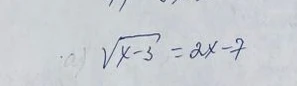 a) √(x-3) = 2x-7